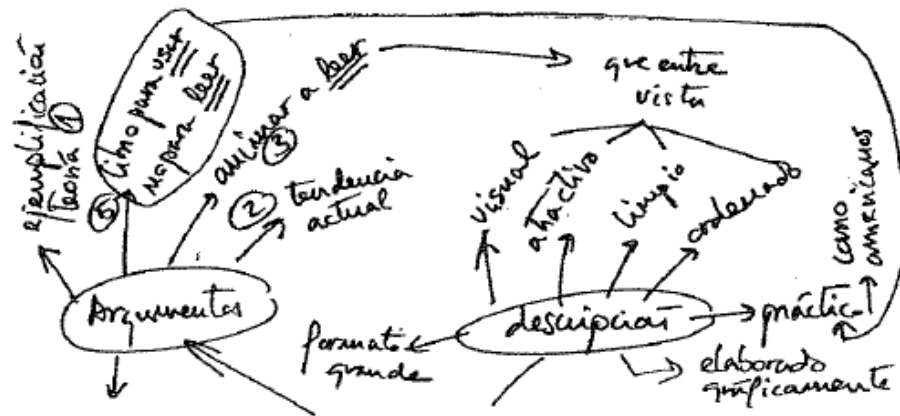 ejemplificación
teoría ①
⑤ libro para usar
no para leer
animar a leer
③
② tendencia
actual
que entre
vista
visual
atractivo
limpio
ordenado
como
americanos
Argumentos
descripción
práctico
formato
grande
elaborado
gráficamente